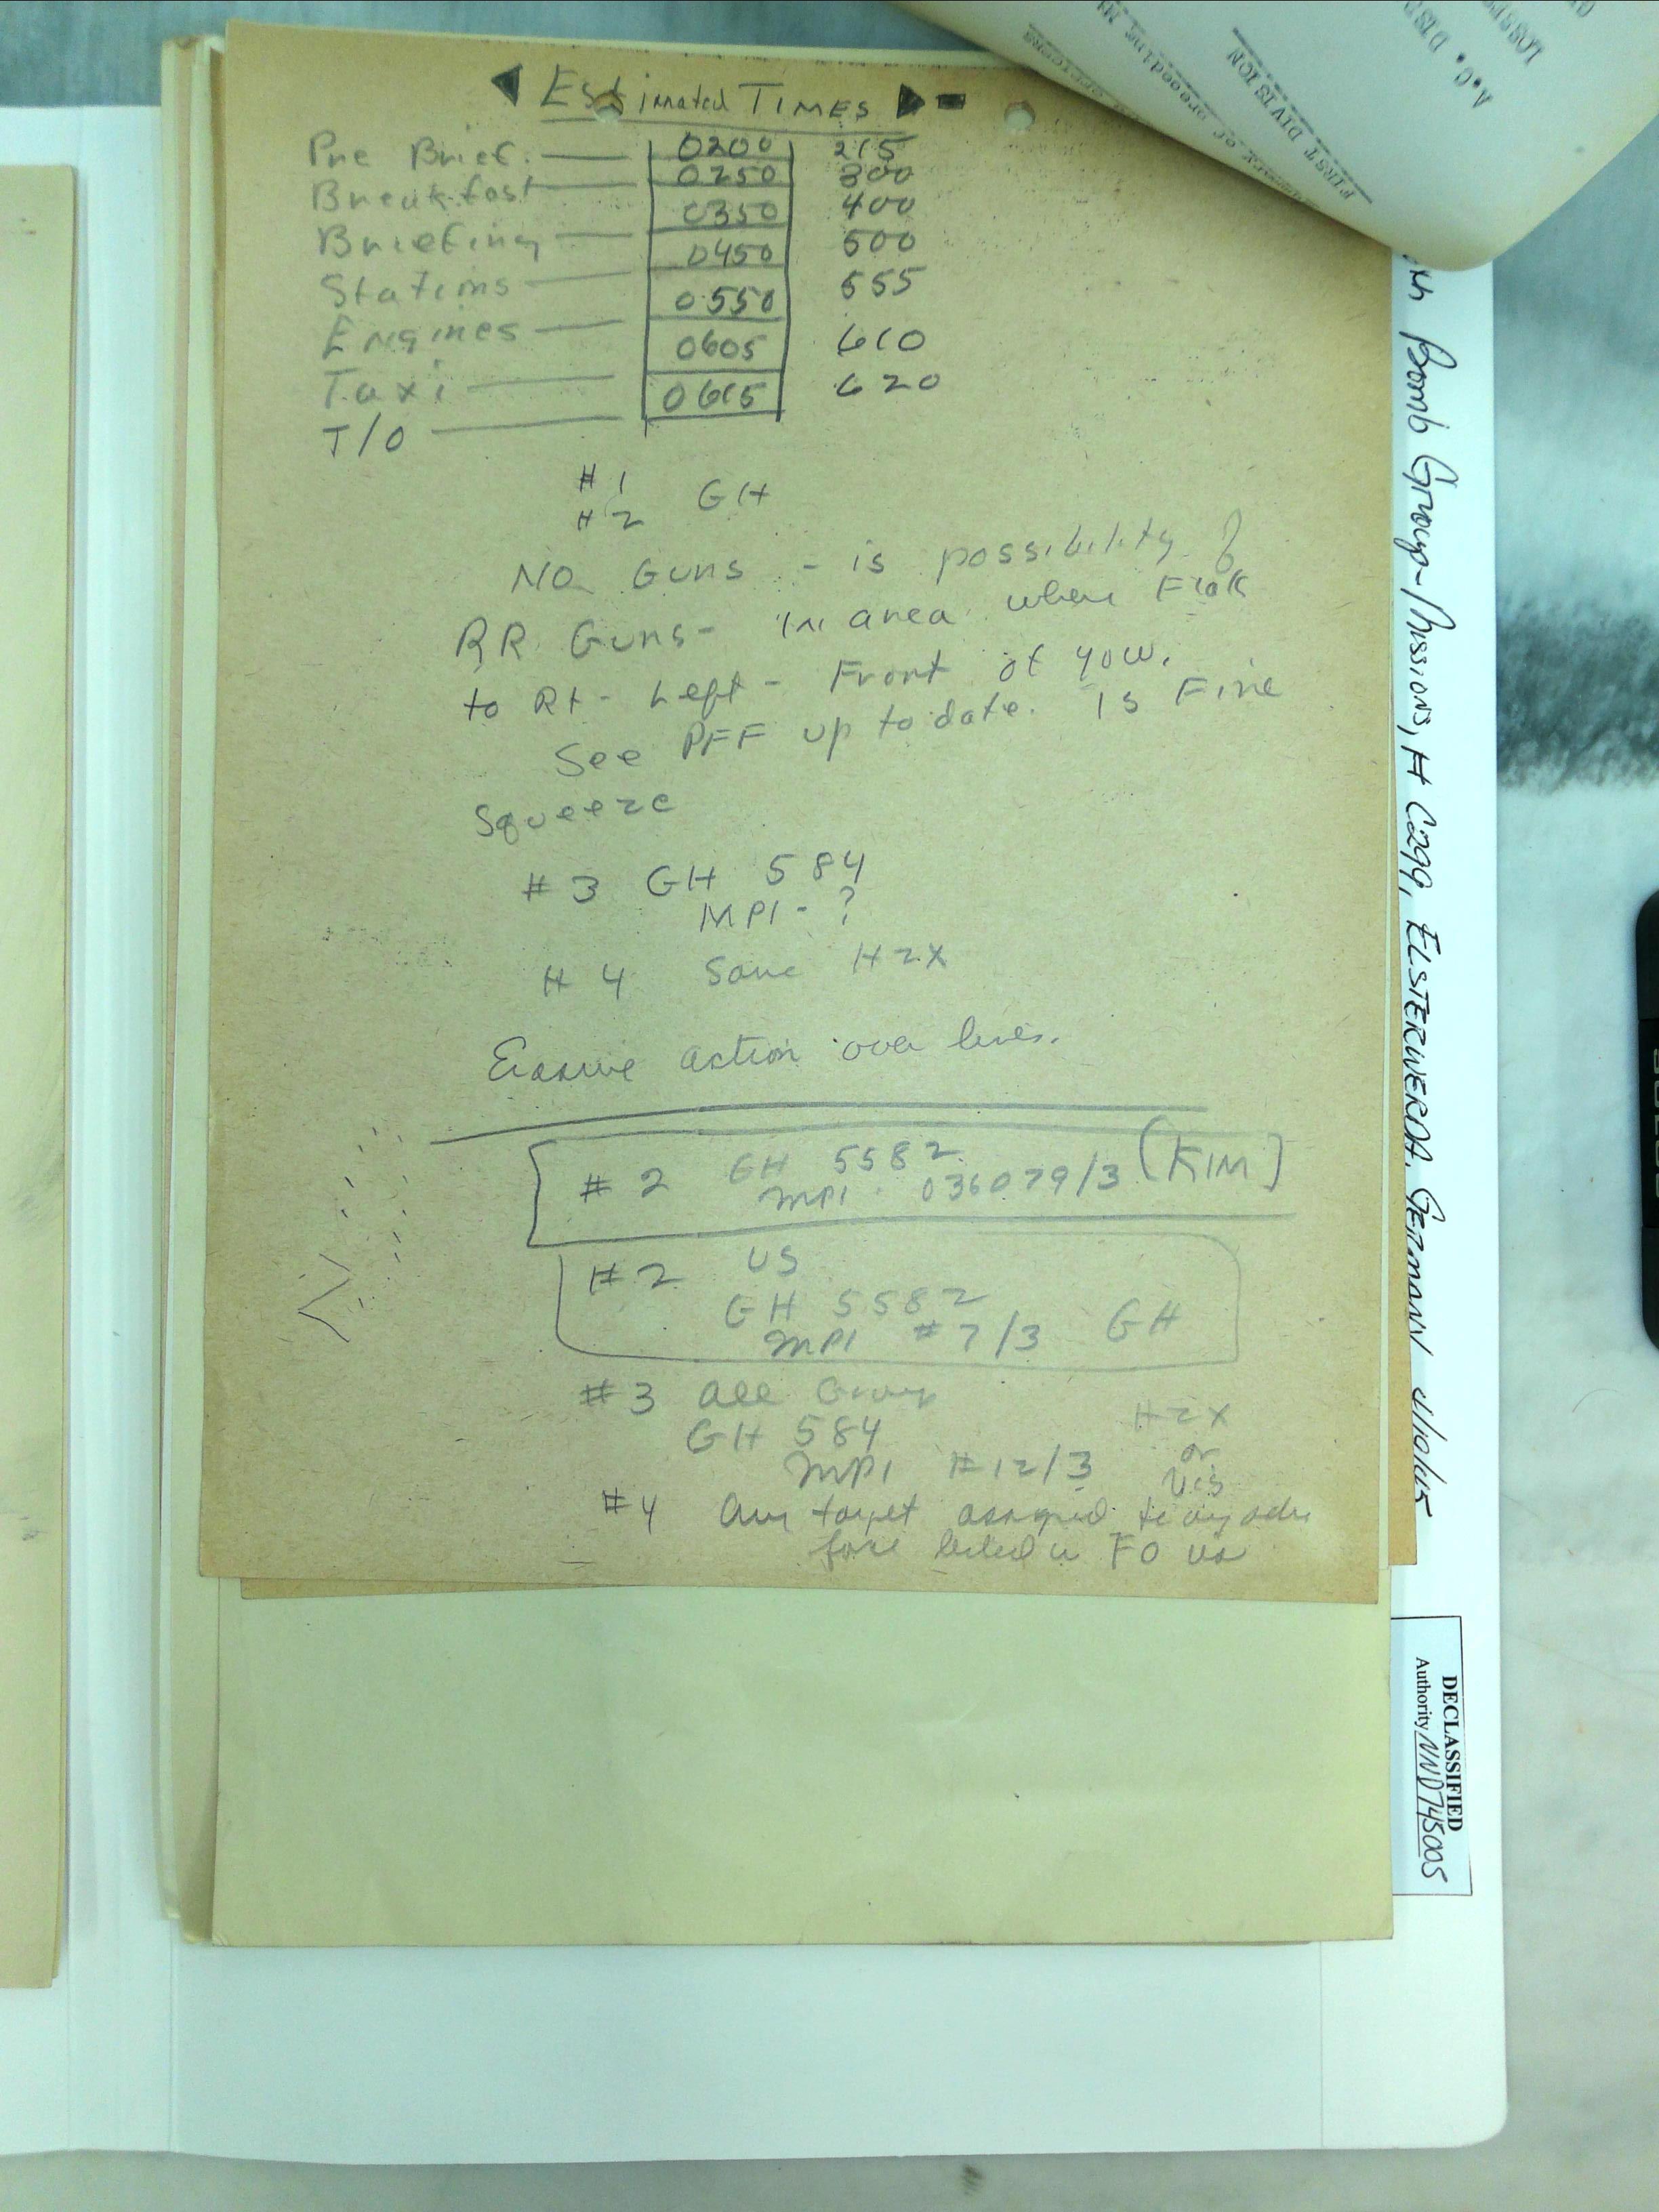 Estimated TIMES
Pre Brief. 0200 215
Breakfast 0250 300
Briefing 0350 400
Stations 0450 500
Engines 0550 555
Taxi 0605 610
T/O 0615 620
#1
#2 GH
No Guns - is possibility of
RR Guns- in area when Flak
to Rt- Left- Front of you.
See PFF up to date. Is Fine
Squeeze
#3 GH 584
MPI - ?
#4 Same H2X
Evasive action over lines.
#2 GH 5582
MPI. 036079/3 (KIM)
#2 US
GH 5582
MPI #7/3 GH
#3 all Group
GH 584 H2X
or
MPI #12/3 Vis
#4 Any target assigned to any other
force listed in FO
A.C. DIS
FIRST DIVISION
preceding
Bomb Group-Missions, # C299, ELSTERWERDA, GERMANY
DECLASSIFIED
Authority NND745005